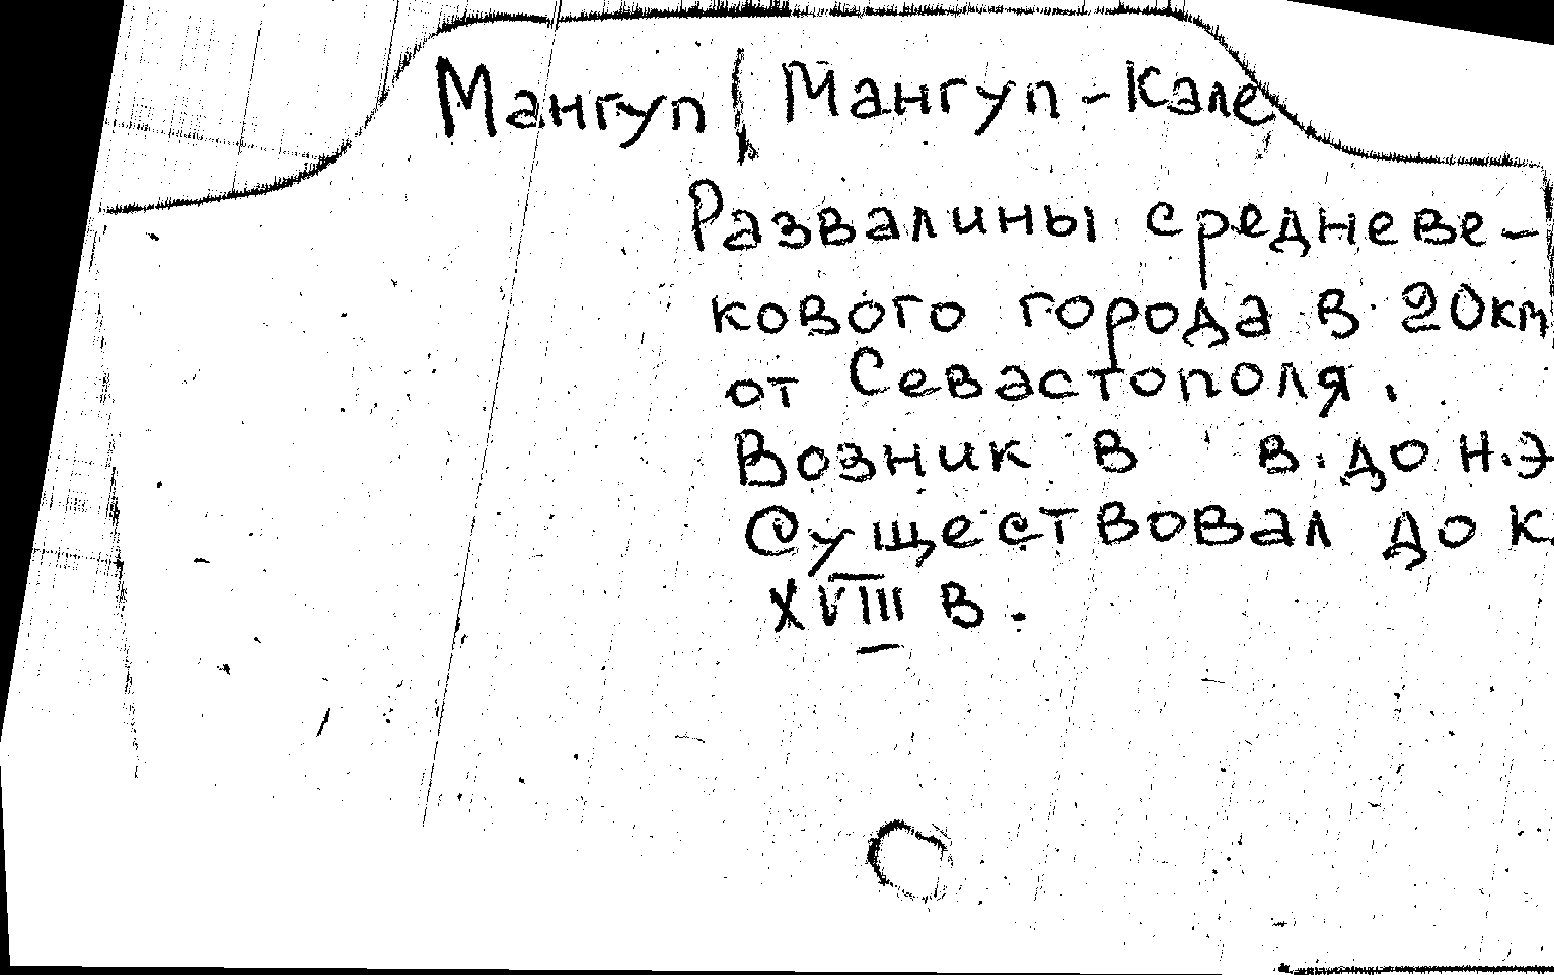 Мангуп | Мангуп-Кале
Развалины средневе-
кового города в 20км
от Севастополя.
Возник в в. до н.э
Существовал до к
XVIII в.